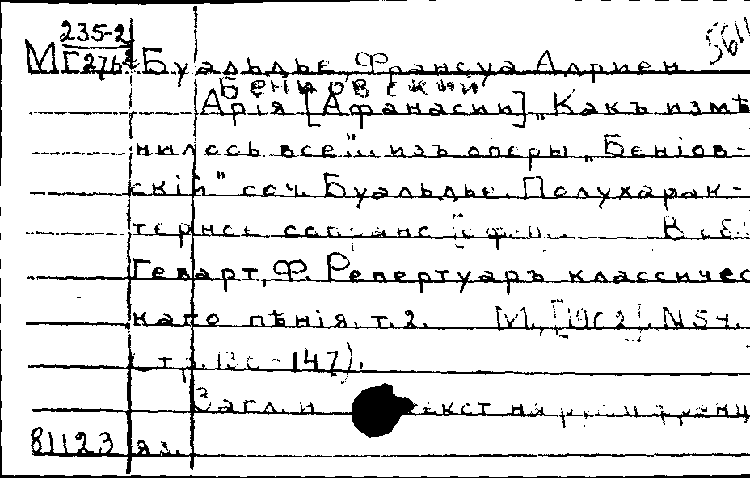 235-2
МГ 276² Буальдье, Франсуа Адриен 5611
Бениовский
Арія [Афанасии] „Какъ измѣ-
нилось все"... изъ оперы „Бенiов-
скій" соч. Буальдье. Полухарак-
терное сопрано
Геварт, Ф. Репертуаръ классичес
каго пѣнія. т. 2. М., [1902]. N 54.
(стр. 136-147).
Загл. и текст на франц
81123 яз.